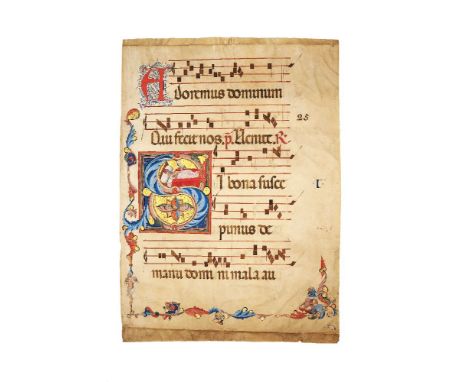 Adoremus dominum
25
Qui fecit nos. p̅. Venite. R
SI bona susce
I
pimus de
manu domi ni mala au